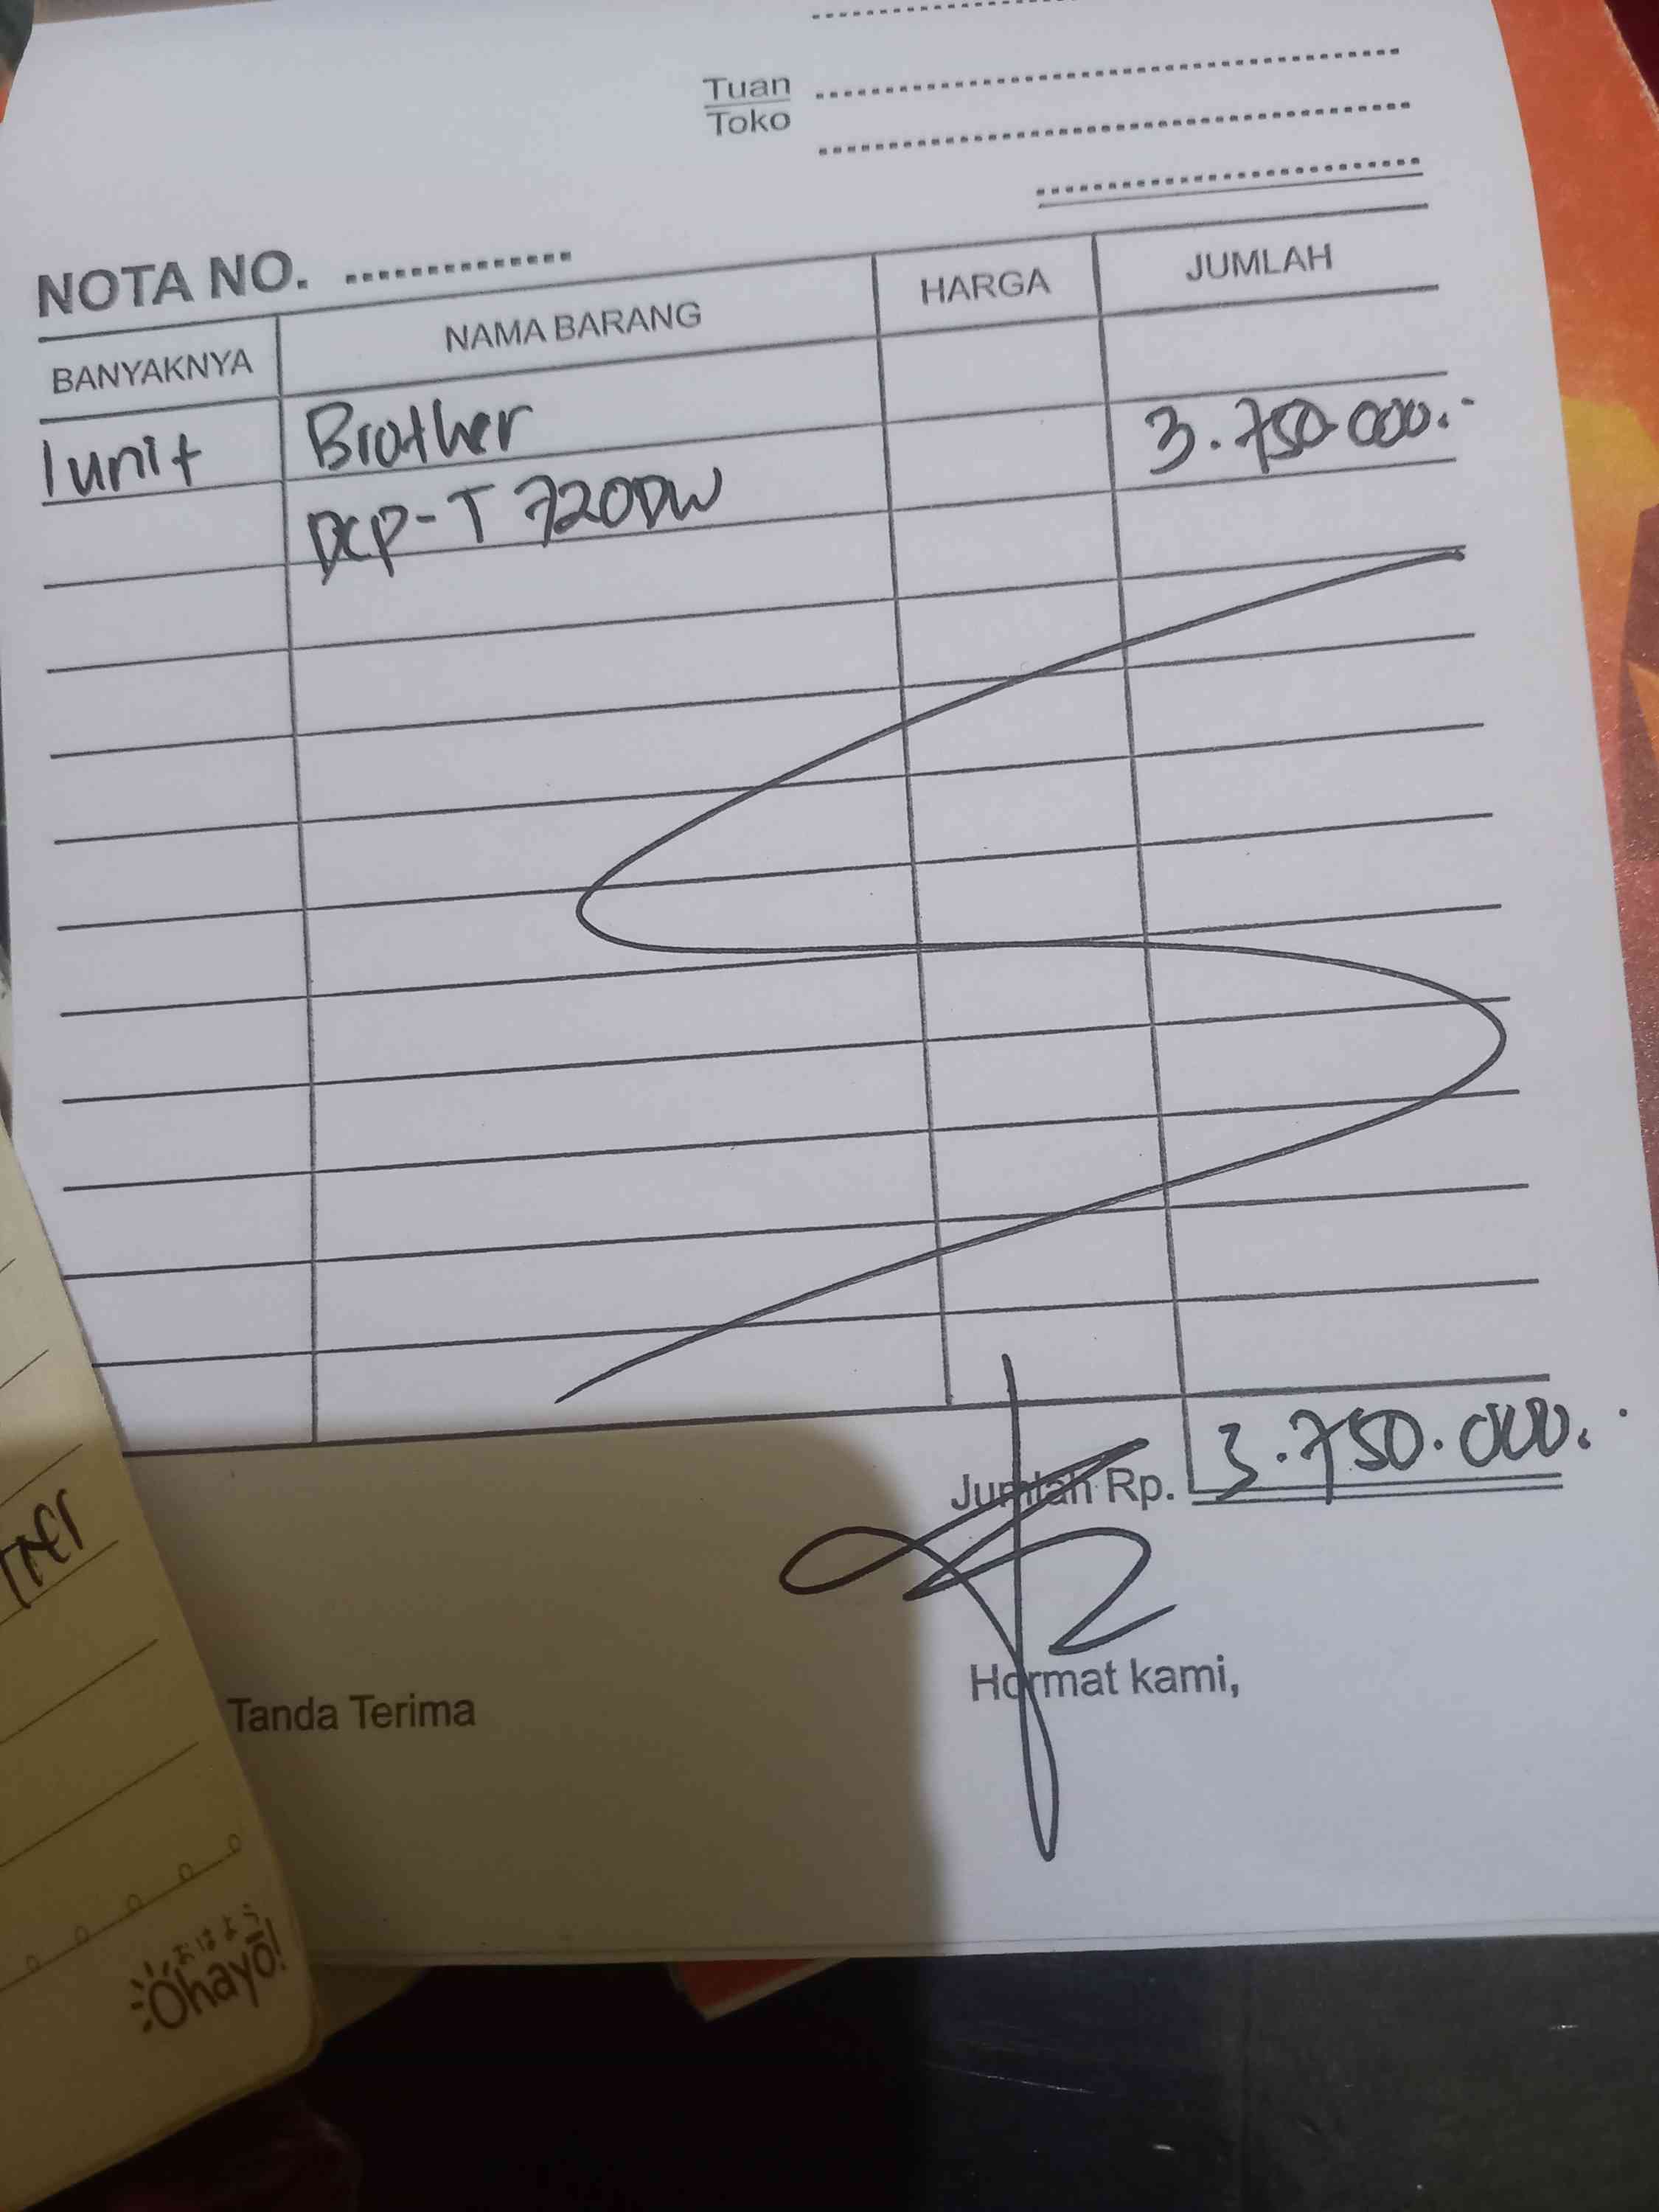 Tuan
Toko
NOTA NO. ..............
BANYAKNYA NAMA BARANG HARGA JUMLAH
1 unit Brother 3.750.000.-
DCP-T 720DW
Jumlah Rp. 3.750.000.-
Tanda Terima Hormat kami,
おはよう
Ohayō!